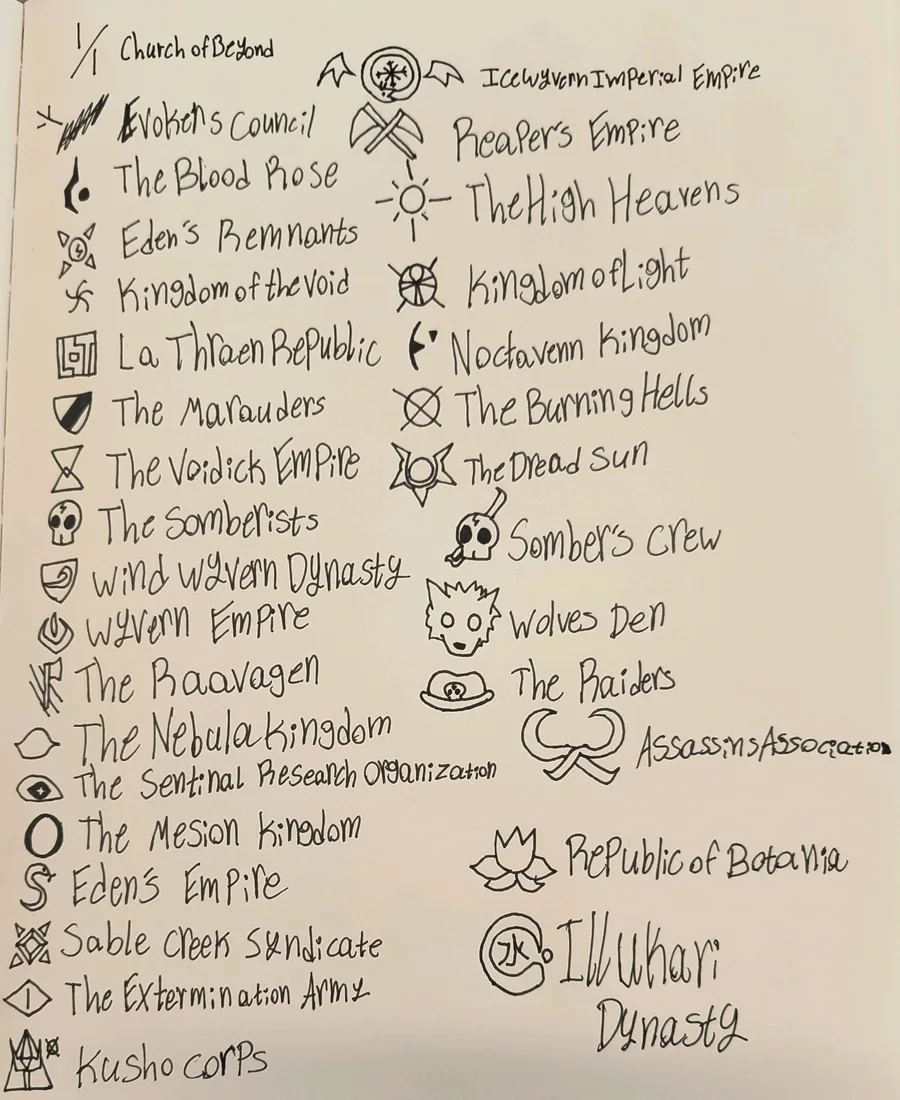 Church of Beyond
Evoker's Council
The Blood Rose
Eden's Remnants
Kingdom of the Void
La Thraen Republic
The Marauders
The Voidick Empire
The Somberists
Wind Wyvern Dynasty
Wyvern Empire
The Raavagen
The Nebula Kingdom
The Sentinal Research Organization
The Mesion Kingdom
Eden's Empire
Sable Creek Syndicate
The Extermination Army
Kusho corps
Ice Wyvern Imperial Empire
Reaper's Empire
The High Heavens
Kingdom of Light
Noctavenn Kingdom
The Burning Hells
The Dread Sun
Somber's Crew
Wolves Den
The Raiders
Assassins Association
Republic of Botania
水 Illukari
Dynasty